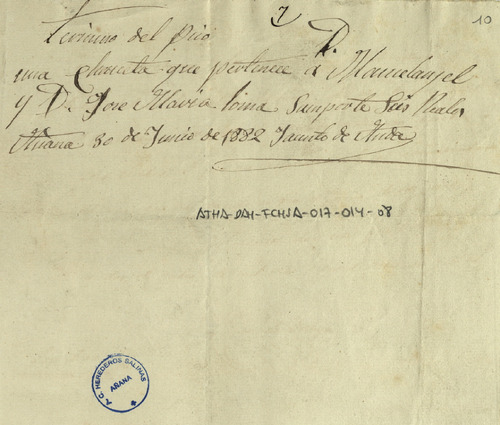 7
10
Termino del pico D.
una Chaneta que pertenece a Manuel angel
y D. Jose Maria loma Sumporte Seis Reales
Añana 30 de Junio de 1882 Fausto de Anda
ATHA-DAH-FCHSA-017-014-08
C. HEREDEROS SALINAS
AÑANA